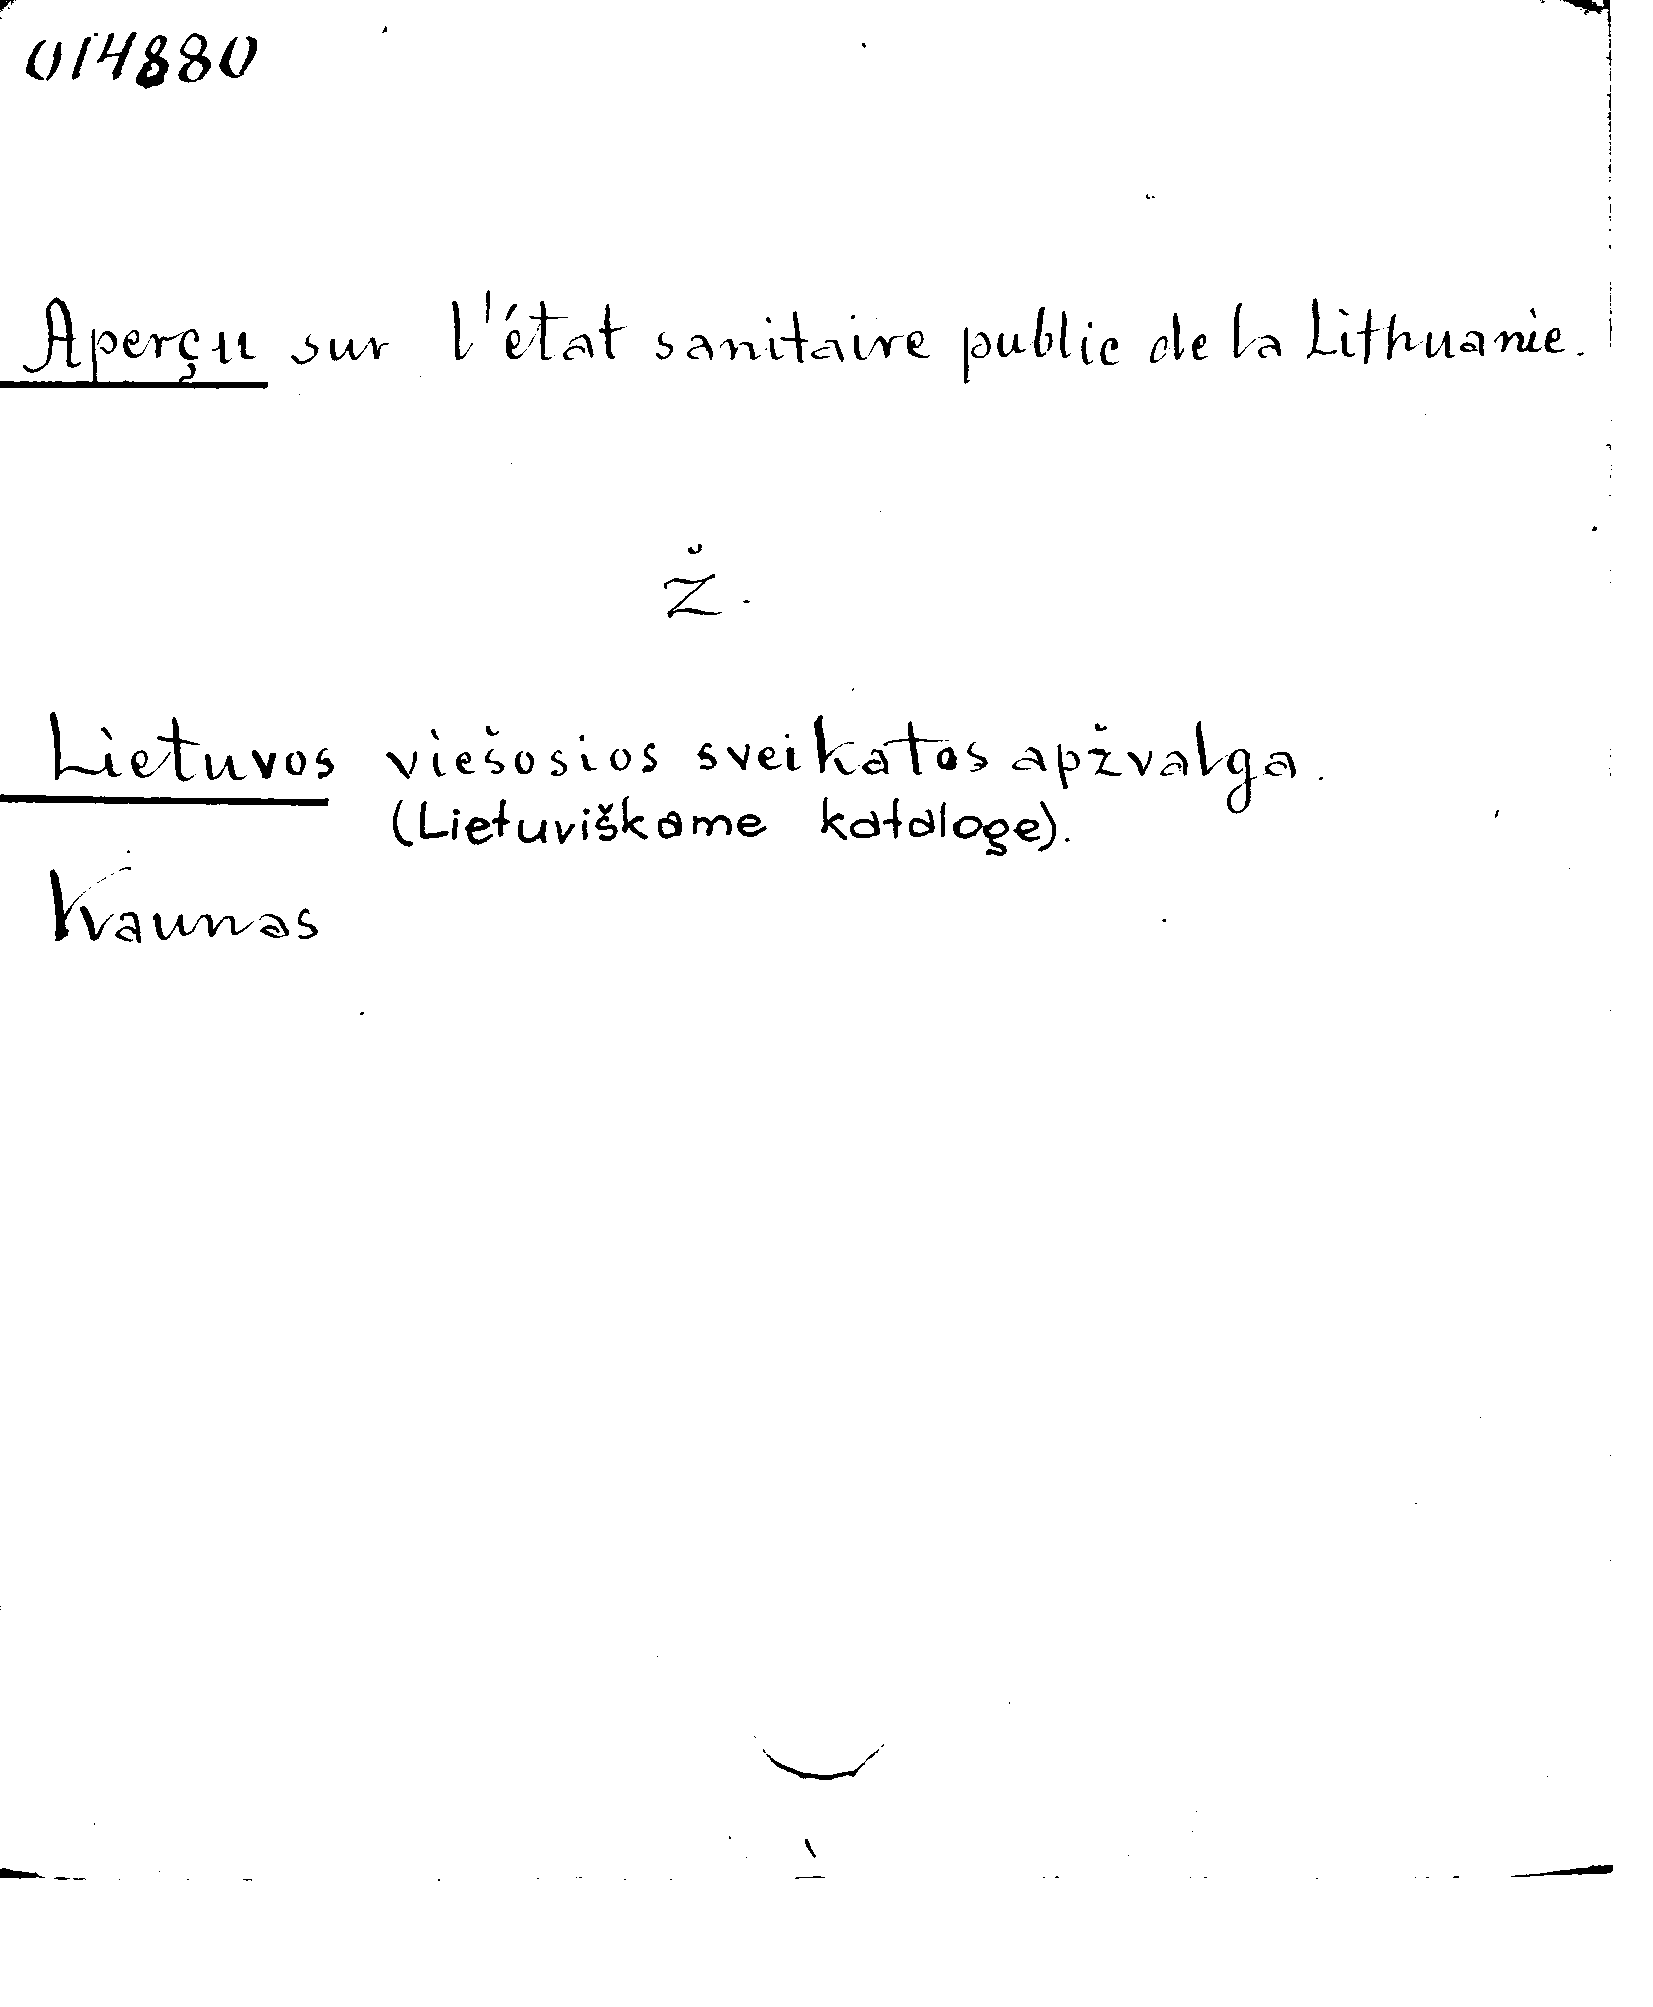 014880
Aperçu sur l'état sanitaire public de la Lithuanie.
Ž.
Lietuvos viešosios sveikatos apžvalga.
(Lietuviškame kataloge).
Kaunas